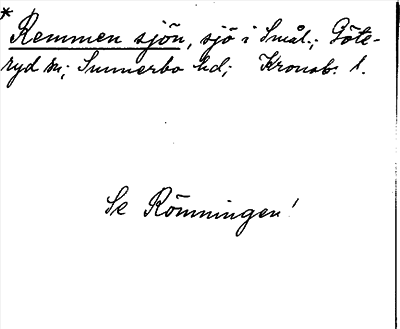 *
Remmen sjön, sjö i Smål.; Göte-
ryd sn; Sunnerbo hd; Kronob. l.
Se Römningen!